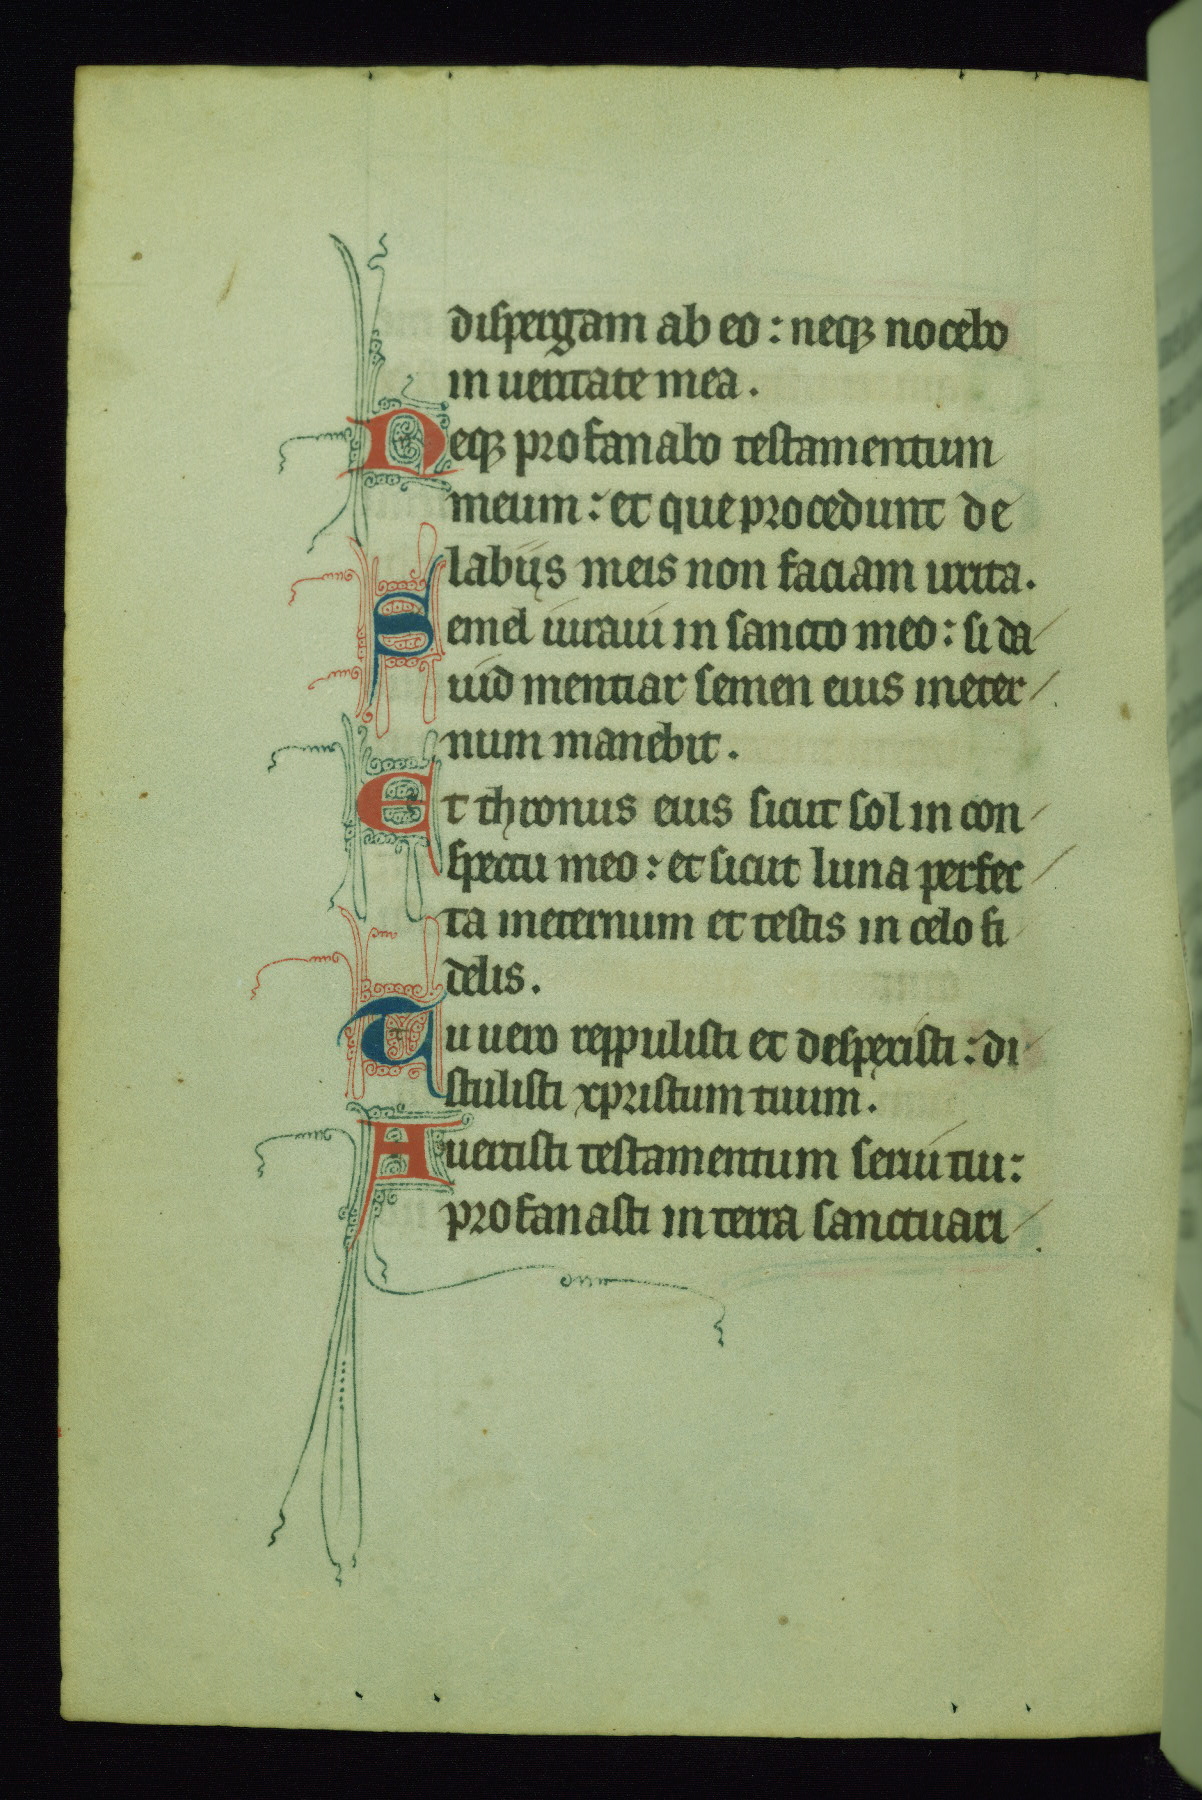 dispergam ab eo : neqȝ nocebo
in ueritate mea .
Neqȝ profanabo testamentum
meum : et que procedunt de
labiis meis non faciam irrita .
Semel iuraui in sancto meo : si da
uid mentiar semen eius in eter
num manebit .
Et thronus eius sicut sol in con
spectu meo : et sicut luna perfec
ta in eternum et testis in celo fi
delis .
Tu uero reppulisti et despexisti : di
stulisti xpristum tuum .
Auertisti testamentum serui tui :
profanasti in terra sanctuari